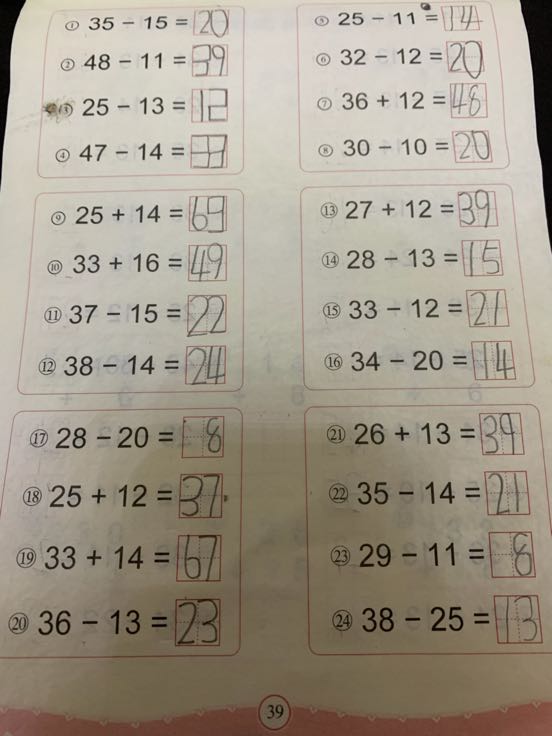 ① 35 − 15 = 20
② 48 − 11 = 39
③ 25 − 13 = 12
④ 47 − 14 = 33
⑤ 25 − 11 = 14
⑥ 32 − 12 = 20
⑦ 36 + 12 = 48
⑧ 30 − 10 = 20
⑨ 25 + 14 = 69
⑩ 33 + 16 = 49
⑪ 37 − 15 = 22
⑫ 38 − 14 = 24
⑬ 27 + 12 = 39
⑭ 28 − 13 = 15
⑮ 33 − 12 = 21
⑯ 34 − 20 = 14
⑰ 28 − 20 = 8
⑱ 25 + 12 = 37
⑲ 33 + 14 = 67
⑳ 36 − 13 = 23
㉑ 26 + 13 = 39
㉒ 35 − 14 = 21
㉓ 29 − 11 = 8
㉔ 38 − 25 = 13
39